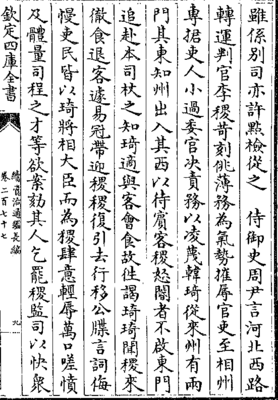 雖係別司亦許點檢從之　侍御史周尹言河北西路
轉運判官李稷苛刻佻薄務為氣勢摧辱官吏至相州
專掎吏人小過委官決責務以凌蔑韓琦從來州有兩
門其東知州出入其西以待賓客稷怒閽者不啟東門
追赴本司杖之知琦適與客會食故往謁琦琦聞稷來
徹食退客遽易冠帶迎稷稷復引去行移公牒言詞侮
慢吏民皆以琦將相大臣而為稷肆意輕辱萬口嗟憤
及體量司程之才等欲案劾其人乞罷稷監司以快衆
欽定四庫全書
續資治通鑑長編
卷二百七十七
九